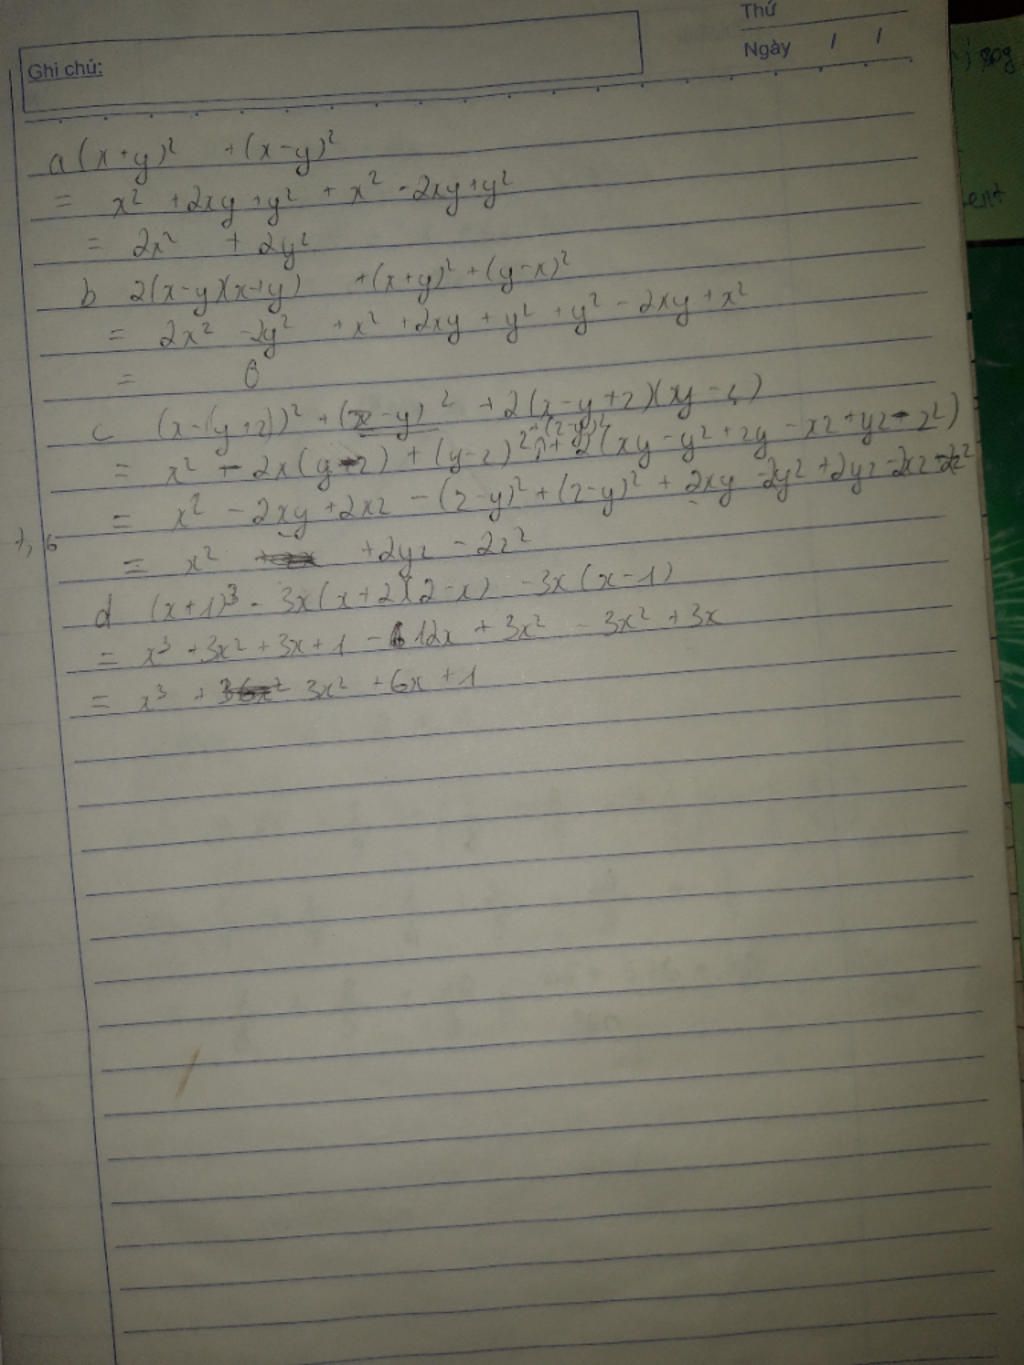 Thứ
Ghi chú:
Ngày / /
a (x+y)² + (x-y)²
= x² + 2xy + y² + x² - 2xy + y²
= 2x² + 2y²
b 2(x-y)(x+y) + (x+y)² + (y-x)²
= 2x² - 2y² + x² + 2xy + y² + y² - 2xy + x²
= 0
c (x-(y+z))² + + 2(x-y+z)
= x² - + (y-z)² + 2(xy - y² + zy - xz + yz - z²)
= x² - 2xy + 2xz - (z-y)² + (z-y)² + 2xy - 2y² + 2yz - 2xz - 2z²
7, 6
= x² + 2yz - 2z²
d (x+1)³ - 3x(x+2)(2-x) - 3x(x-1)
= x³ + 3x² + 3x + 1 - 12x + 3x² - 3x² + 3x
= x³ + 3x² + 6x + 1